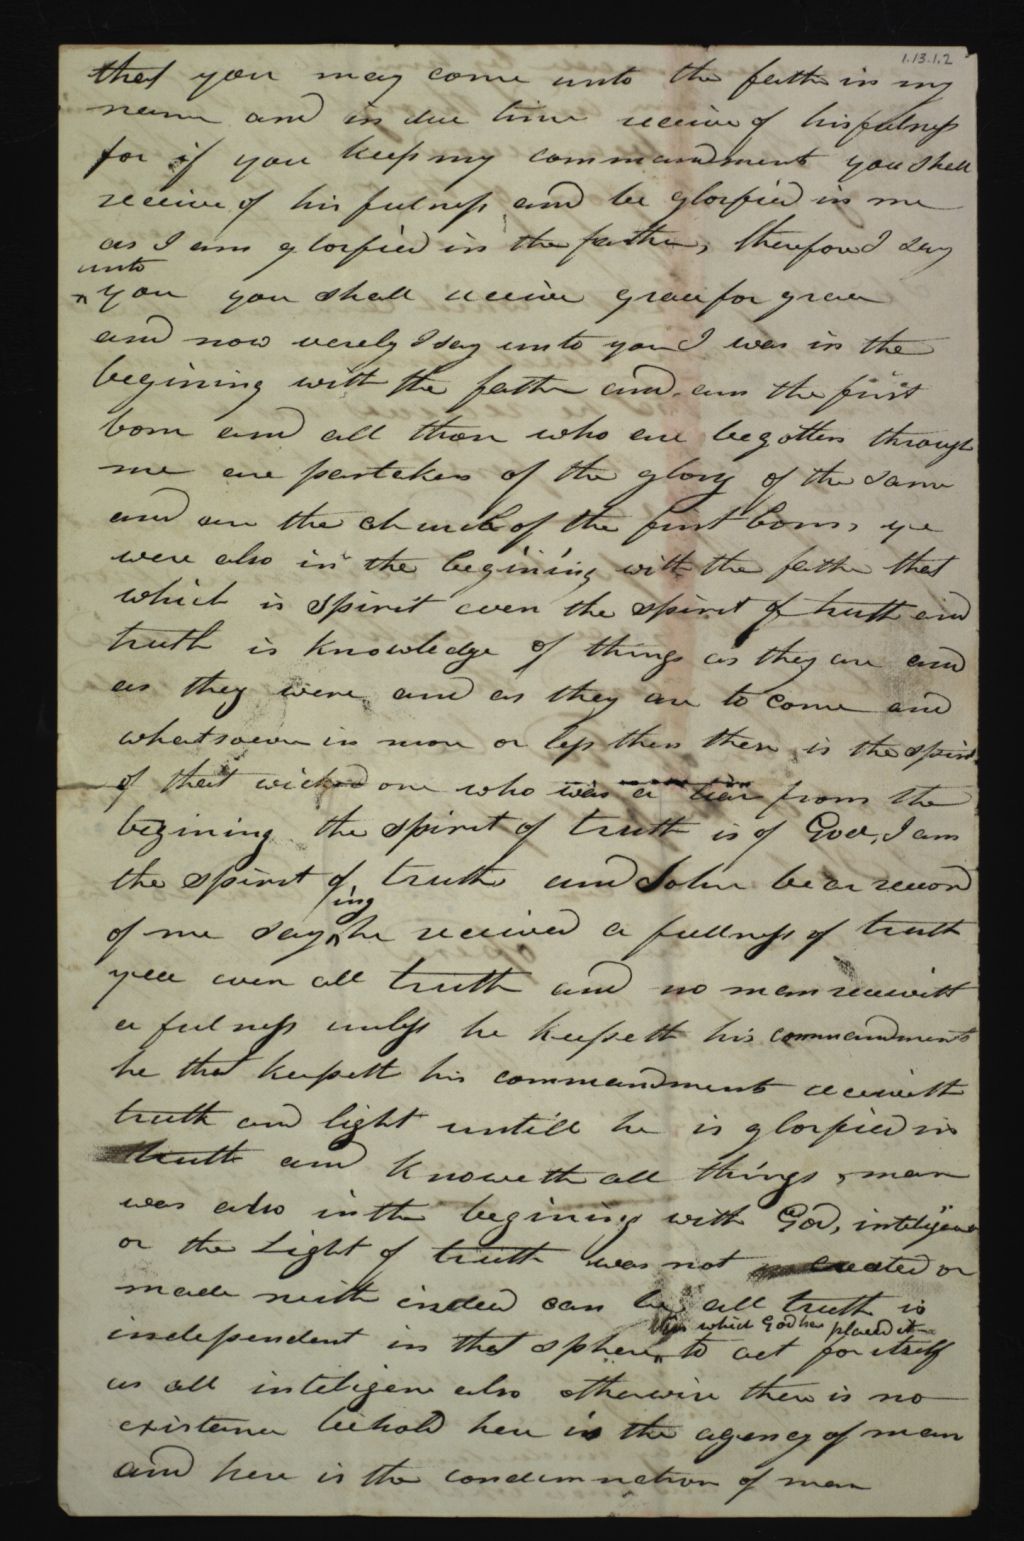 1.13.1.2
that you may come unto the father in my
name and in due time receive of his fulness
for if you keep my commandments you shall
receive of his fulness and be glorfied in me
as I am glorfied in the father, therefore I say
unto
^ you you shall receive grace for grace
and now verely I say unto you I was in the
begining with the father and am the first
born and all those who are begotten through
me are partakers of the glory of the same
and are the church of the first born, ye
were also in the begining with the father that
which is spirit even the spirit of truth and
truth is knowledge of things as they are and
as they were and as they are to come and
whatsoever is more or less then these is the spirit
of that wicked one who was a liar from the
begining the spirit of truth is of God, I am
the spirit of truth and John bear record
ing
of me say ^ he received a fullness of truth
yea even all truth and no man receiveth
a fulness unless he keepeth his commandments
he that keepeth his commandments receiveth
truth and light untill he is glorfied in
truth and knoweth all things, man
was also in the begining with God, inteligence
or the Light of truth was not created or
made neith indeed can be all truth is
in which God has placed it
independent in that sphere ^ to act for itself
as all inteligence also otherwise there is no
existance behold here is the agency of man
and here is the condemnation of man